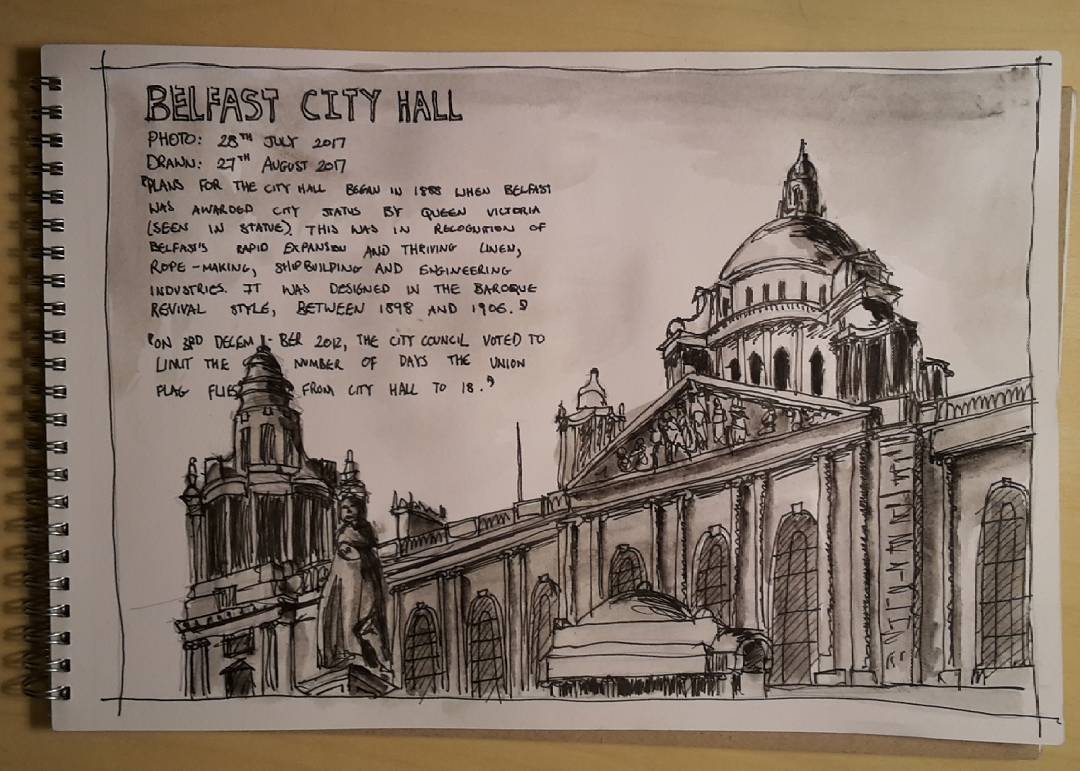 BELFAST CITY HALL
PHOTO: 28TH JULY 2017
DRAWN: 27TH AUGUST 2017
"PLANS FOR THE CITY HALL BEGAN IN 1888 WHEN BELFAST
WAS AWARDED CITY STATUS BY QUEEN VICTORIA
(SEEN IN STATUE). THIS WAS IN RECOGNITION OF
BELFAST'S RAPID EXPANSION AND THRIVING LINEN,
ROPE-MAKING, SHIPBUILDING AND ENGINEERING
INDUSTRIES. IT WAS DESIGNED IN THE BAROQUE
REVIVAL STYLE, BETWEEN 1898 AND 1906."
"ON 3RD DECEM-BER 2012, THE CITY COUNCIL VOTED TO
LIMIT THE NUMBER OF DAYS THE UNION
FLAG FLIES FROM CITY HALL TO 18."